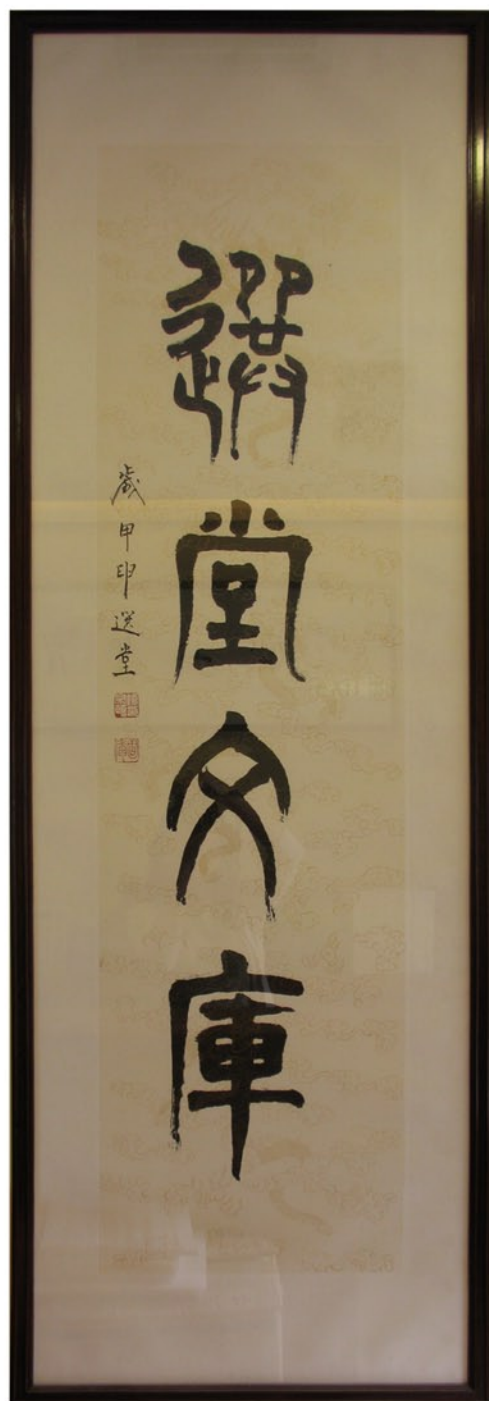 選堂文庫
歲甲申選堂